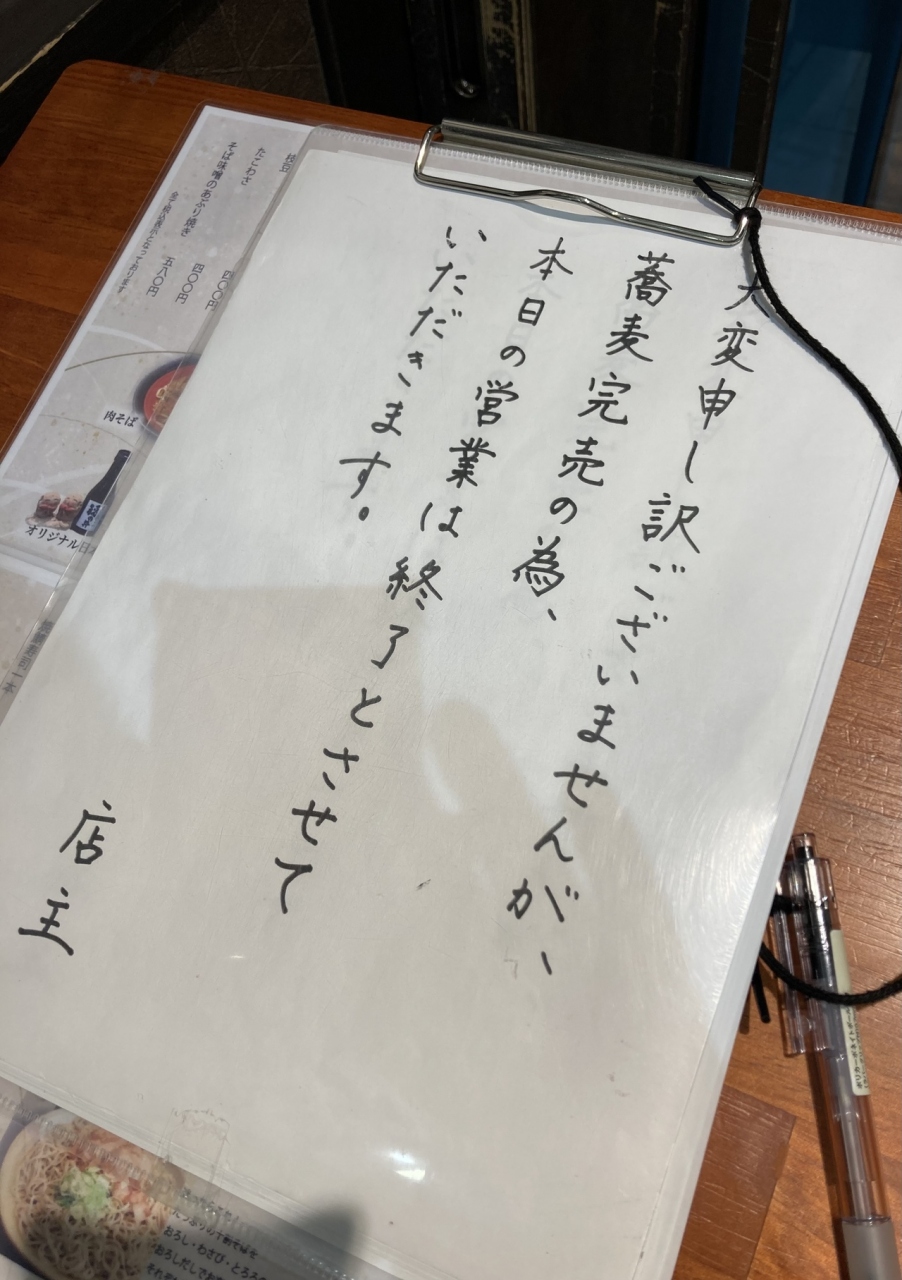 大変申し訳ございませんが、
蕎麦完売の為、
本日の営業は終了とさせて
いただきます。
店主
枝豆
たこわさ
そば味噌のあぶり焼き
四〇〇円
四〇〇円
五八〇円
肉そば
オリジナル日本
おろし・わさび・とろろ